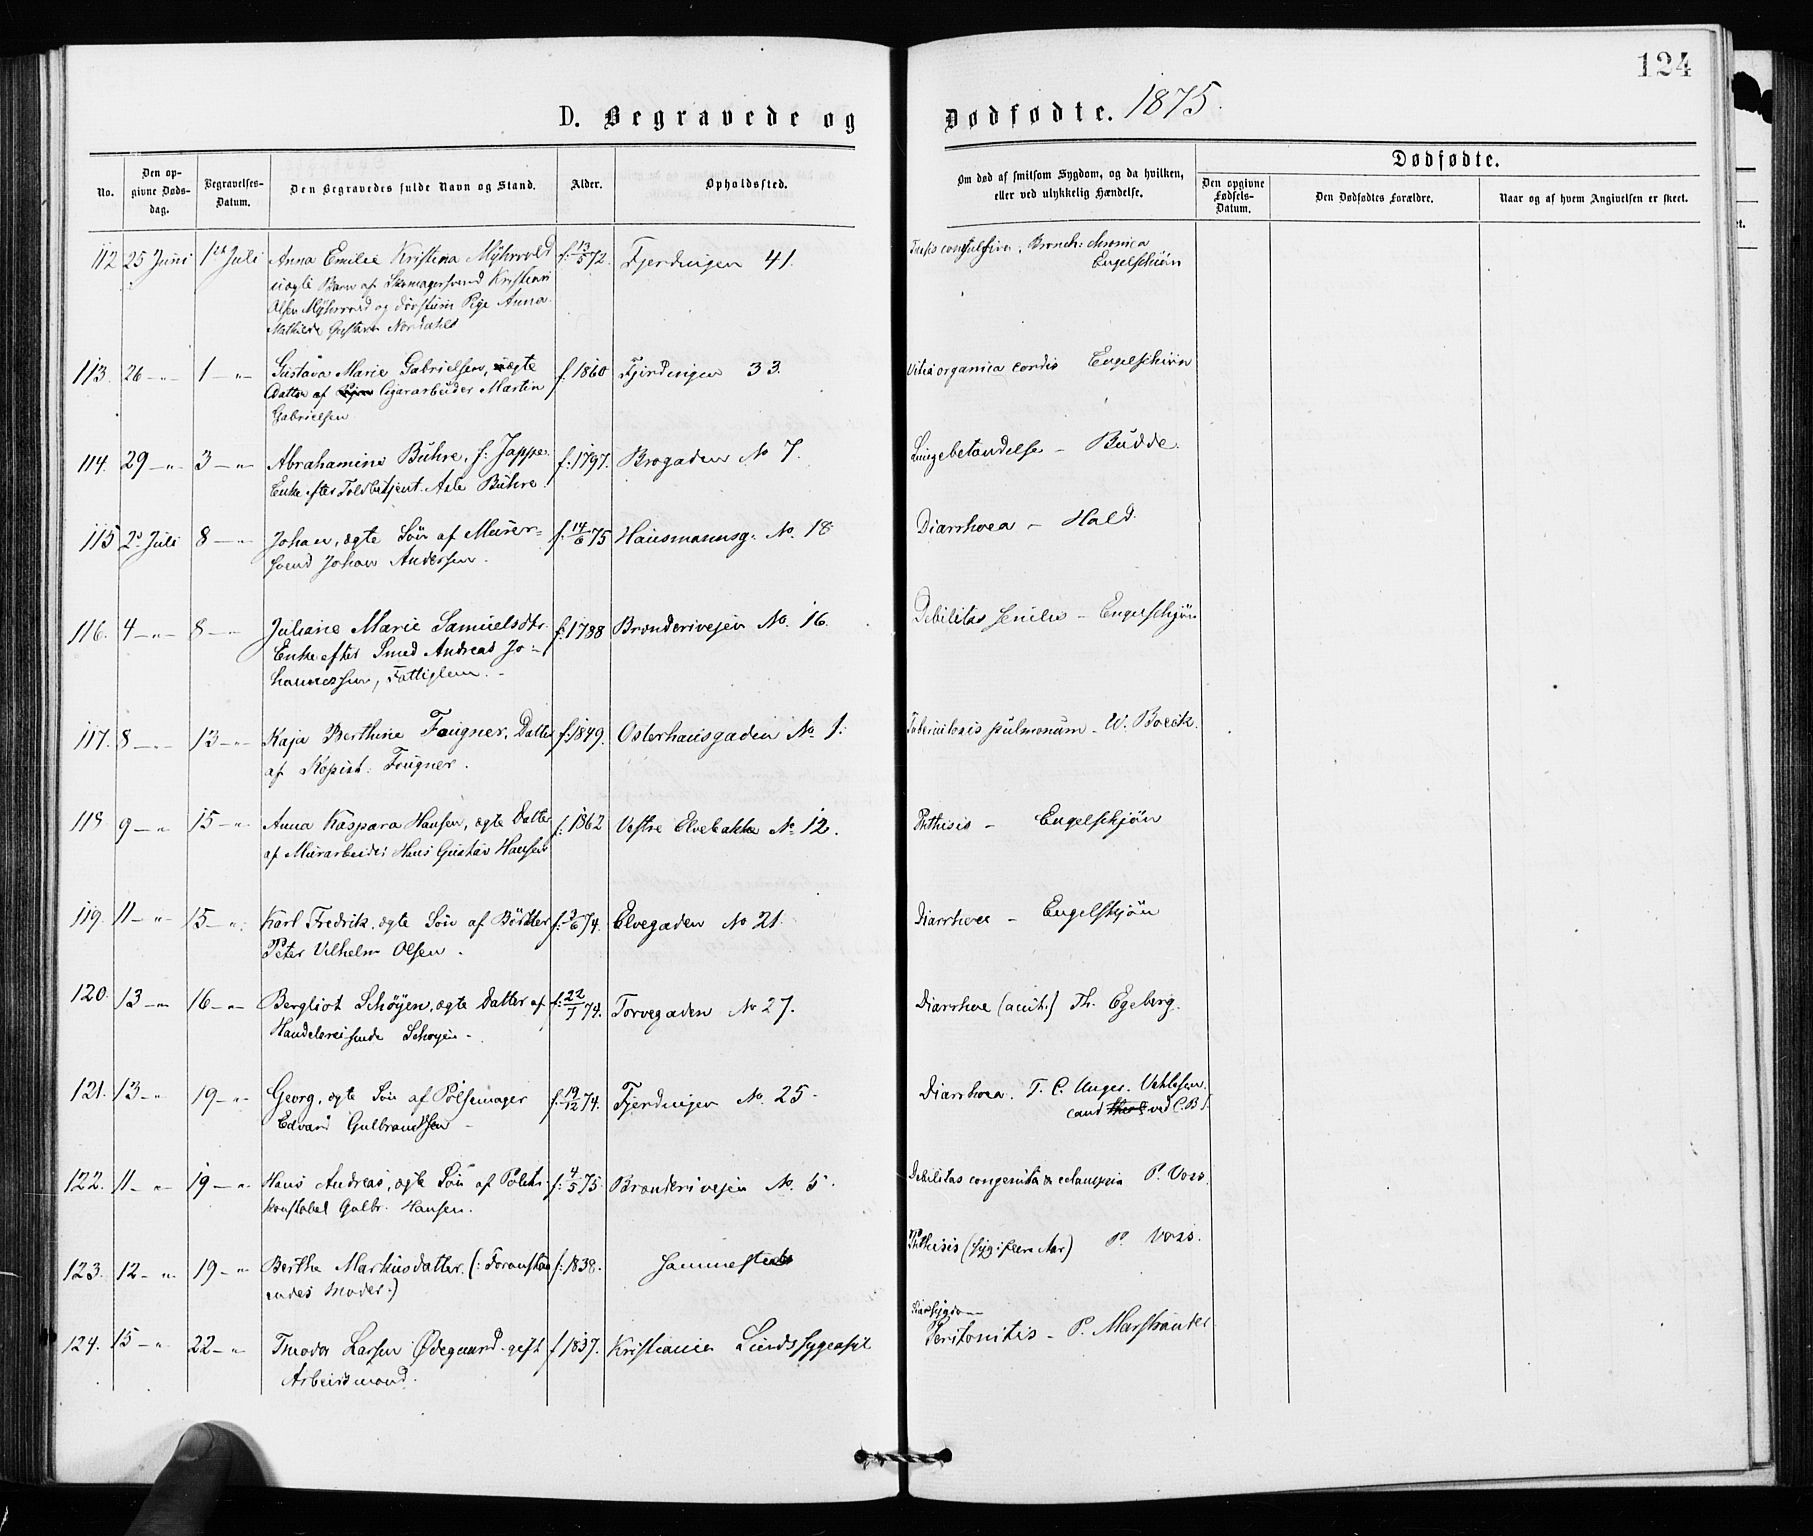 124
D. Begravede og Dødfødte. 1875.
No. Den opgivne Dødsdag. Begravelses-Datum. Den Begravedes fulde Navn og Stand. Alder. Opholdssted. Om død af smitsom Sygdom, og da hvilken, eller ved ulykkelig Hændelse. Dødfødte. Den opgivne Fødsels-Datum. Den Dødfødtes Forældre. Naar og af hvem Angivelsen er skeet.
112 25 Juni 1ste Juli Anna Emilie Kristina Myhrvold f: 13/5 72. Fjerdingen 41. Tussis convulsiva, Bronch: chronica
uægte Barn af Skomagersvend Kristian Engelschiøn
Olsen Myhrvold og Pige Anna
Mathilde Gustava Nordahl
113. 26 -"- 1 -"- Gustava Marie Gabrielsen, ægte f. 1860 Fjerdingen 33. Vitia organica cordis Engelschiøn
Datter af Cigararbeider Martin
Gabrielsen
114. 29 -"- 3 -"- Abrahamine Buhre, f: Jappe. f: 1797. Brogaden No 7. Lungebetændelse - Budde.
Enke efter Toldbetjent Asle Buhre.
115 2 Juli 8 -"- Johan, ægte Søn af Murer- f: 14/6 75 Hausmannsg. No. 18 Diarrhoea - Hald.
svend Johan Andersen.
116. 4 -"- 8 -"- Juliane Marie Samuelsdtr. f: 1788 Brænderivejen No. 16. Debilitas senilis - Engelschjøn
Enke efter Smed Andreas Jo-
hannessen, Fattiglem. -
117. 8 -"- 13 -"- Kaja Berthine Fougner, Datter f: 1849. Osterhausgaden No 1. Tuberculosis pulmonum - W. Boeck.
af Kopist: Fougner.
118. 9 -"- 15 -"- Anna Kaspara Hansen, ægte Datter f: 1862 Vestre Elvebakke No 12. Phthisis - Engelschjøn
af Murarbeider Hans Gustav Hansen
119. 11 -"- 15 -"- Karl Fredrik, ægte Søn af Bødker Elvegaden No 21. Diarrhoea - Engelschjøn
Peter Vilhelm Olsen.
120. 13 -"- 16 -"- Bergliot Schøyen, ægte Datter af Torvegaden No 27. Diarrhoe (acut.) Th. Egeberg.
Handelsreisende Schøyen -
121. 13 -"- 19 -"- Georg, ægte Søn af Pølsemager f: 19/12 74. Fjerdingen No. 25. Diarrhoea. T. C. Unger. Vehlesen.
Edvard Gulbrandsen -
122. 11 -"- 19 -"- Hans Andreas, ægte Søn af Politi- f: 4/5 75. Brænderivejen No. 5. Debilitas congenita & eclampsia P. Voss.
konstabel Gulbr. Hansen.
123. 12 -"- 19 -"- Berthe Markusdatter. (: Foranstaa- f: 1838. Sammesteds Phthisis (syg i flere Aar) P. Voss.
endes Moder.)
124. 15 -"- 22 -"- Theodor Larsen Ødegaard. gift f 1837. Kristiania Sindssygeasyl Peritonitis - P. Marstrander
Arbeidsmand.